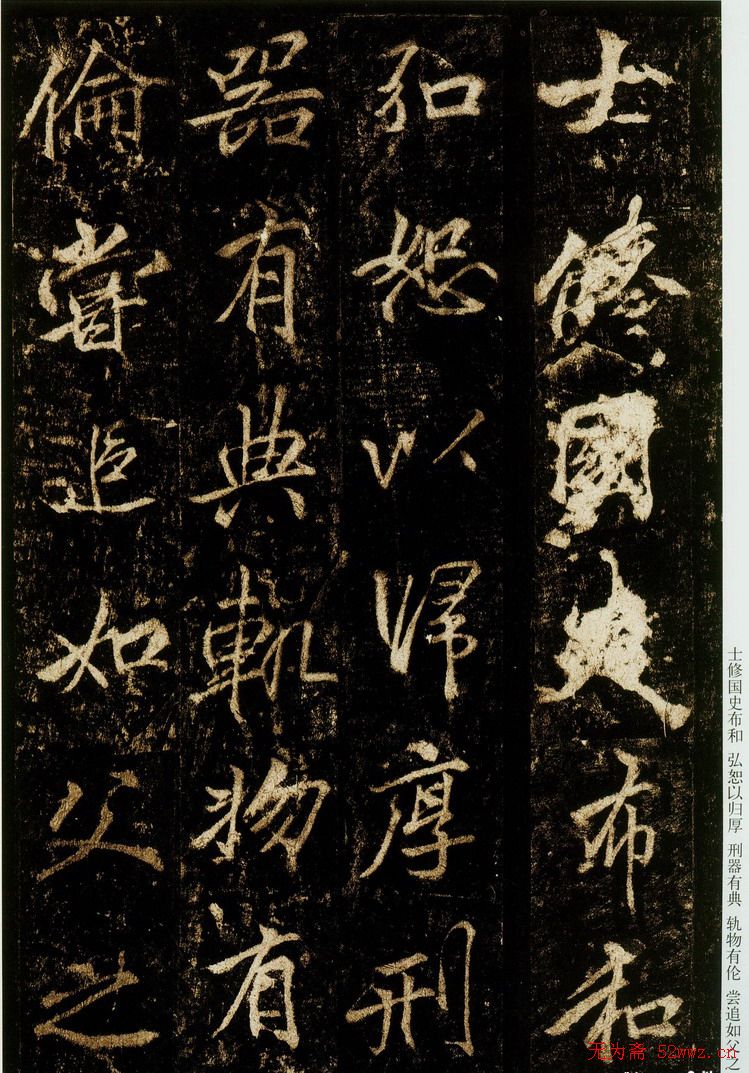 士修國史布和
弘恕以歸厚刑
器有典軌物有
倫嘗追如父之
士修国史布和 弘恕以归厚 刑器有典 轨物有伦 尝追如父之
无为斋 52wwz.cn